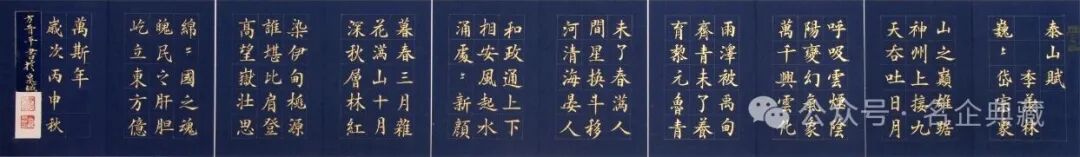 泰山賦
李善林
巍〻岱宗眾
山之巔雄踞
神州上接九
天吞吐日月
呼吸雲煙陰
陽變幻氣象
萬千興雲化
雨澤被禹甸
齊青未了養
育黎元魯青
未了春滿人
間星換斗移
河清海晏人
和政通上下
相安風起水
涌處〻新顏
暮春三月雜
花滿山十月
深秋層林紅
染伊甸桃源
誰堪比肩登
高望嶽壯思
綿〻國之魂
魄民之肝胆
屹立東方億
萬斯年
歲次丙申秋
公众号·名企典藏